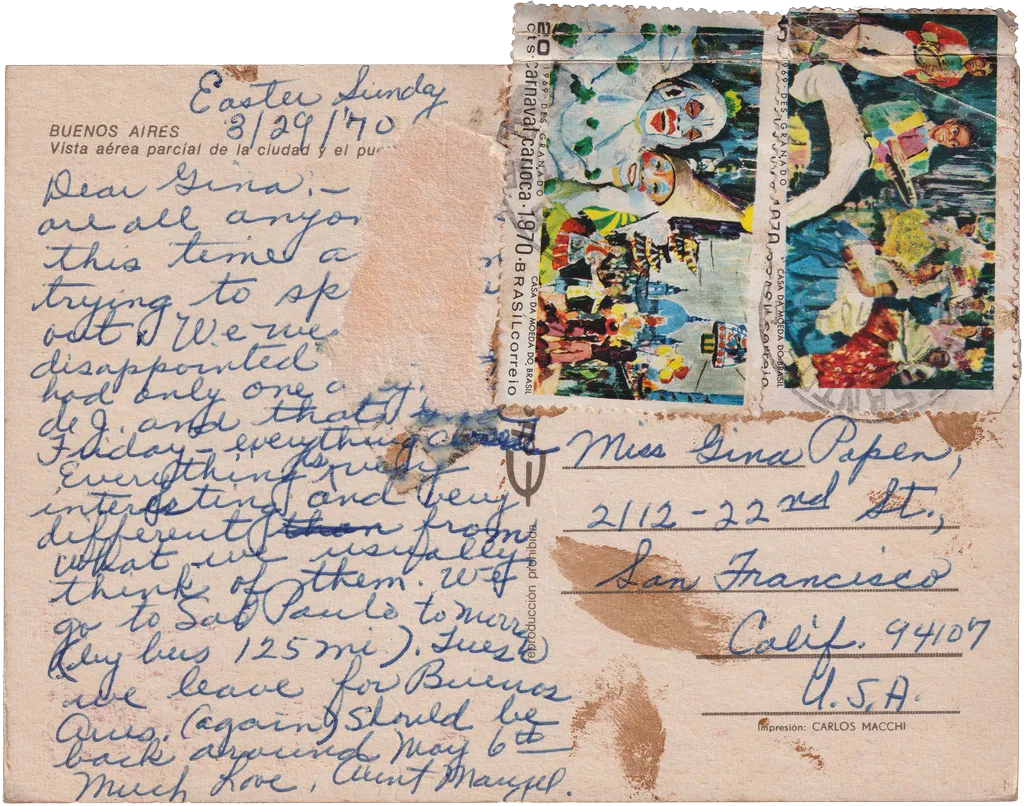 Easter Sunday
3/29/'70
BUENOS AIRES
Vista aérea parcial de la ciudad y el pue
Dear Gina:—
are all anyon
this time a
trying to sp
out. We we
disappointed
had only one day
de J. and that
Friday - everything closed
Everything is very
interesting and very
different than from
what we usually
think of them. We
go to Sao Paulo tomorr
(by bus 125 mi). Tues
we leave for Buenos
Aires. (again) Should be
back around May 6th
Much Love, Aunt
20 cts carnaval carioca · 1970 · BRASIL correio
1969 · DES GRANADO
CASA DA MOEDA DO BRASIL
1969 · DES GRANADO
1970
CASA DA MOEDA DO BRASIL
correio
Miss Gina Pepen,
2112 - 22nd St.,
San Francisco
Calif. 94107
U.S.A.
reproducción prohibida
Impresión: CARLOS MACCHI